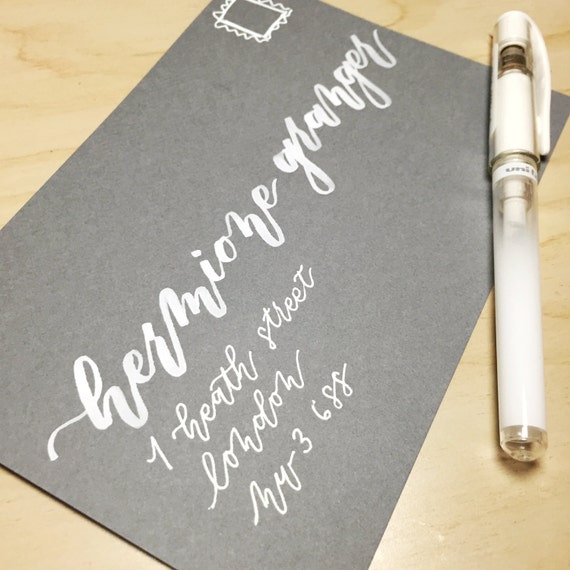 hermione granger
1 heath street
london
nw3 6ss
uni